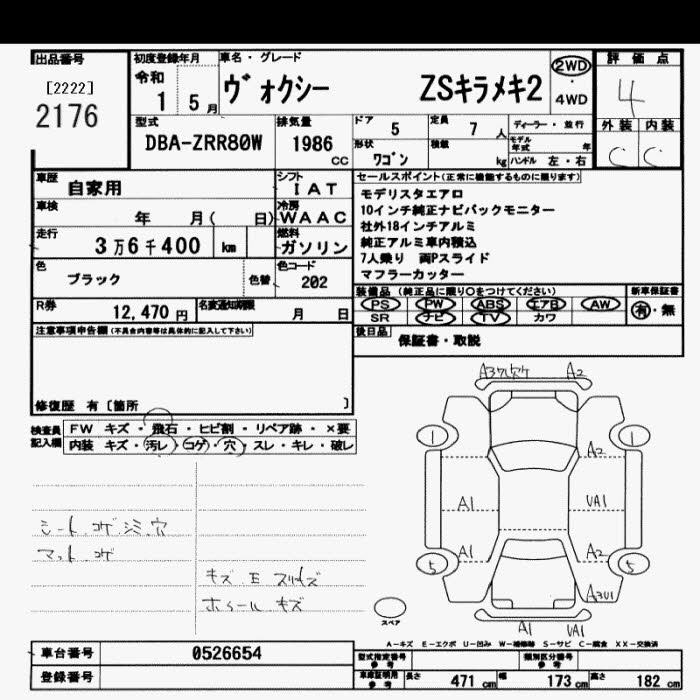 出品番号 初度登録年月 車名・グレード 評価点
[2222] 令和 ヴォクシー ZSキラメキ2 2WD・4WD 4
2176 1 5月
外装 内装
C C
型式 排気量 ドア 5 定員 7人 ディーラー・並行
DBA-ZRR80W 1986cc 形状 ワゴン 積載 kg モデル年式 年
ハンドル 左・右
車歴 自家用 シフト IAT
車検 年 月( 日) 冷房 WAAC
走行 3万6千400 km 燃料 ガソリン
色 ブラック 色替 色コード 202
R券 12,470円 名変通知期限 月 日
セールスポイント(正常に機能するものに限ります)
モデリスタエアロ
10インチ純正ナビバックモニター
社外18インチアルミ
純正アルミ車内積込
7人乗り 両Pスライド
マフラーカッター
装備品 (純正品に限り○をつけてください) 新車保証書
PS PW ABS エアB AW 有・無
SR ナビ TV カワ
後日品 保証書・取説
注意事項申告欄(不具合内容等は具体的に記入して下さい)
修復歴 有 [箇所 ]
検査員記入欄 FW キズ・飛石・ヒビ割・リペア跡・×要
内装 キズ・汚レ・コゲ・穴・スレ・キレ・破レ
シート コゲ シミ 穴
マット コゲ
キズ E スリキズ
ホイール キズ
A3カケ A2
1 1
A2
A1 UA1
A1 A2
5 5
A3U1
A1 UA1
スペア
A-キズ E-エクボ U-凹み W-補修跡 S-サビ C-腐食 XX-交換済
車台番号 0526654
登録番号
型式指定番号 参考 類別区分番号 参考
車庫証明用 参考 長さ 471cm 幅 173cm 高さ 182cm